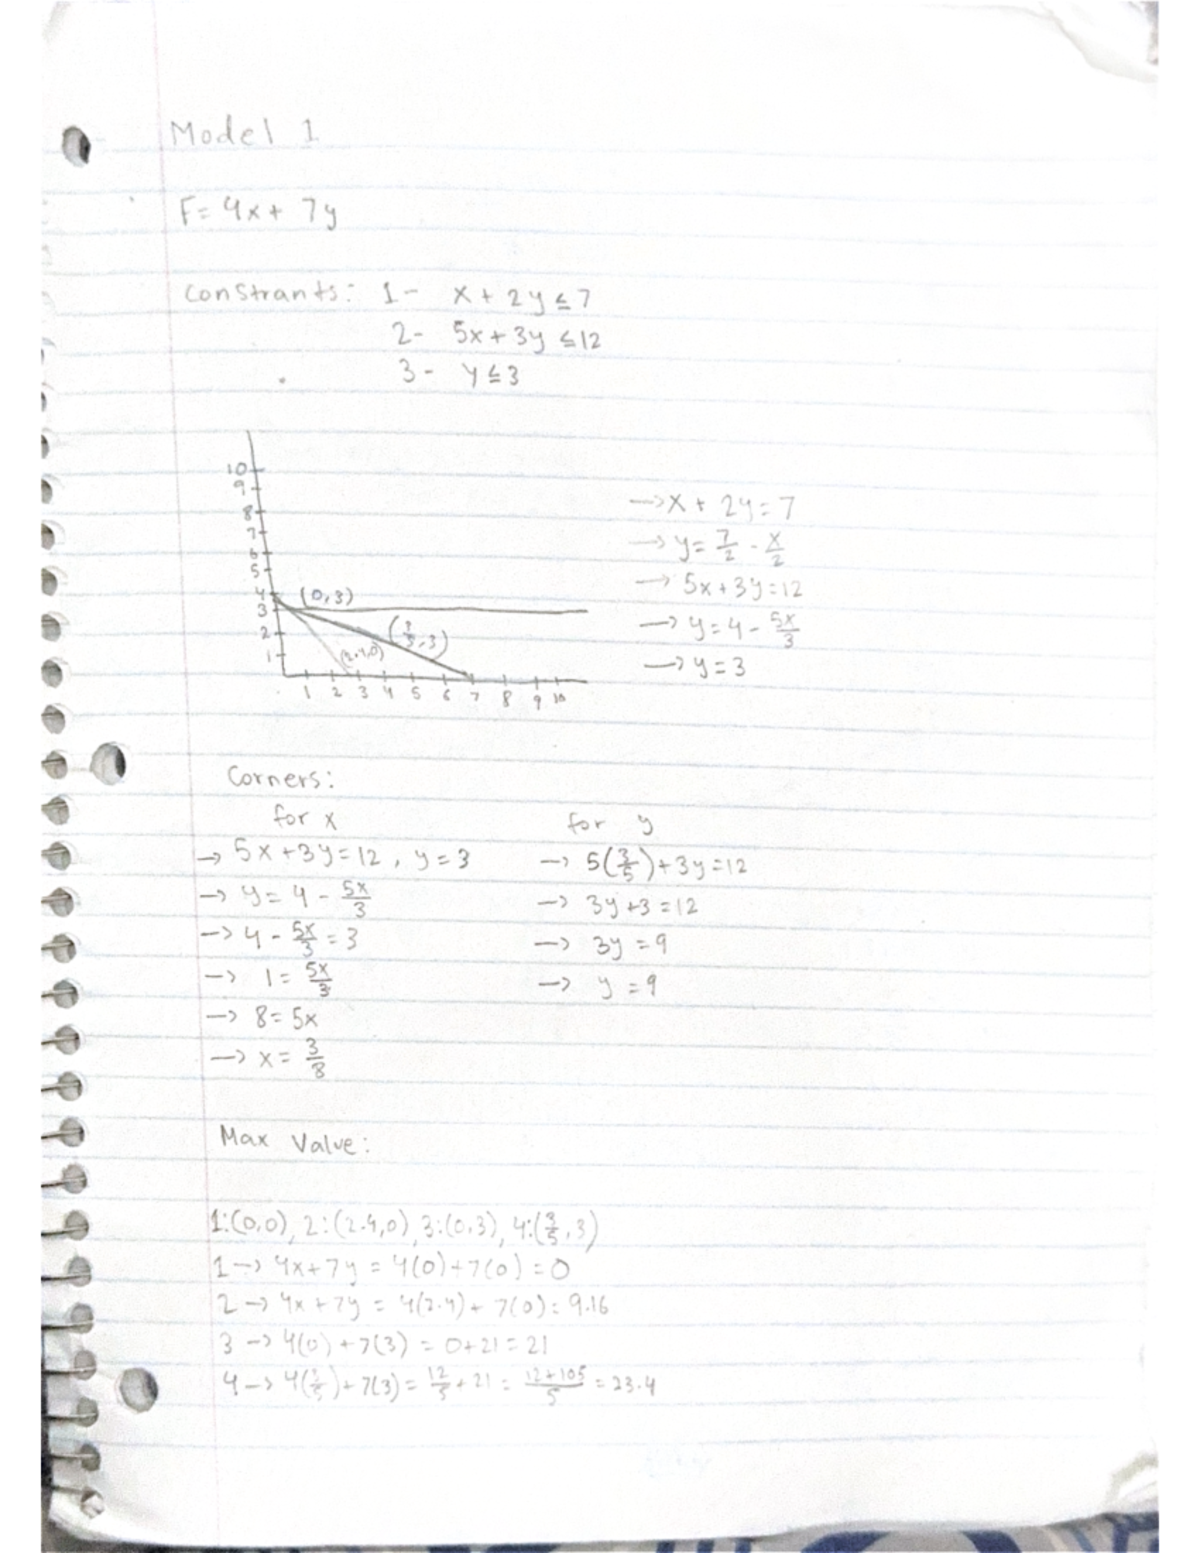 Model 1
F= 4x+ 7y
Constrants: 1- x+ 2y ≤ 7
2- 5x+ 3y ≤ 12
3- y ≤ 3
10
9
8
7
6
5
4
3
2
1
(0,3)
(3/5, 3)
(2.4,0)
1 2 3 4 5 6 7 8 9 10
→ x + 2y = 7
→ y = 7/2 - x/2
→ 5x+3y=12
→ y = 4 - 5x/3
→ y = 3
Corners:
for x
→ 5x+3y=12, y=3
→ y = 4 - 5x/3
→ 4 - 5x/3 = 3
→ 1 = 5x/3
→ 8 = 5x
→ x = 3/8
for y
→ 5(3/5)+3y=12
→ 3y+3=12
→ 3y = 9
→ y = 9
Max Value:
1:(0,0), 2:(2.4,0), 3:(0,3), 4:(3/5, 3)
1 → 4x+7y = 4(0)+7(0) = 0
2 → 4x+7y = 4(2.4)+ 7(0) = 9.16
3 → 4(0)+7(3) = 0+21 = 21
4 → 4(3/5)+7(3) = 12/5 + 21 = 12+105/5 = 23.4